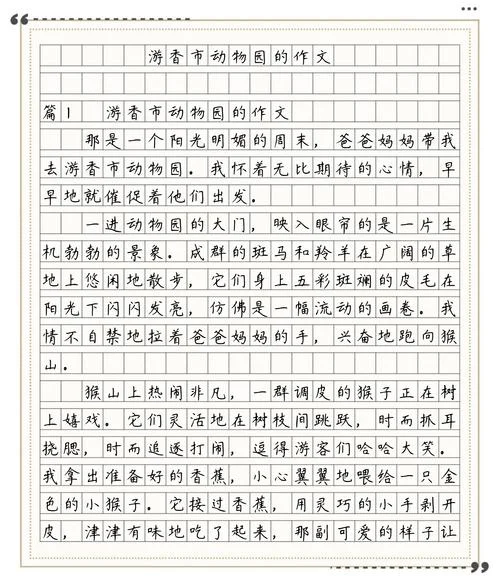 游香市动物园的作文
篇1 游香市动物园的作文
那是一个阳光明媚的周末，爸爸妈妈带我
去游香市动物园．我怀着无比期待的心情，早
早地就催促着他们出发．
一进动物园的大门，映入眼帘的是一片生
机勃勃的景象．成群的斑马和羚羊在广阔的草
地上悠闲地散步，它们身上五彩斑斓的皮毛在
阳光下闪闪发亮，仿佛是一幅流动的画卷．我
情不自禁地拉着爸爸妈妈的手，兴奋地跑向猴
山．
猴山上热闹非凡，一群调皮的猴子正在树
上嬉戏．它们灵活地在树枝间跳跃，时而抓耳
挠腮，时而追逐打闹，逗得游客们哈哈大笑．
我拿出准备好的香蕉，小心翼翼地喂给一只金
色的小猴子．它接过香蕉，用灵巧的小手剥开
皮，津津有味地吃了起来，那副可爱的样子让